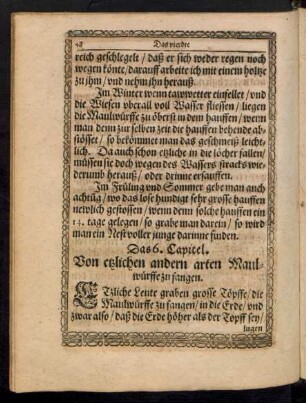 48 Das vierdte
reich geschlegelt / daß er sich weder regen noch
wegen könte / darauff arbeite ich mit einem holtze
zu jhm / vnd nehm jhn herauß.
Im Winter wenn tawwetter einfellet / vnd
die Wiesen vberall voll Wasser fliessen / liegen
die Maulwürffe zu öberst in dem hauffen / wenn
man denn zur selben zeit die hauffen behende ab-
stösset / so bekömmet man das geschmeiß leicht-
lich. Da auch schon etzliche in die löcher fallen /
müssen sie doch wegen des Wassers stracks wie-
derumb herauß / oder drinne ersauffen.
Im Früling vnd Sommer gebe man auch
achtũg / wo das lose hundigt sehr grosse hauffen
newlich gestossen / wenn denn solche hauffen ein
14. tage gelegen / so grabe man darein / so wird
man ein Nest voller junge darinne finden.
Das 6. Capitel.
Von etzlichen andern arten Maul-
würffe zu fangen.
ETzliche Leute graben grosse Töpffe / die
Maulwürffe zu fangen / in die Erde / vnd
zwar also / daß die Erde höher als der Topff sey /